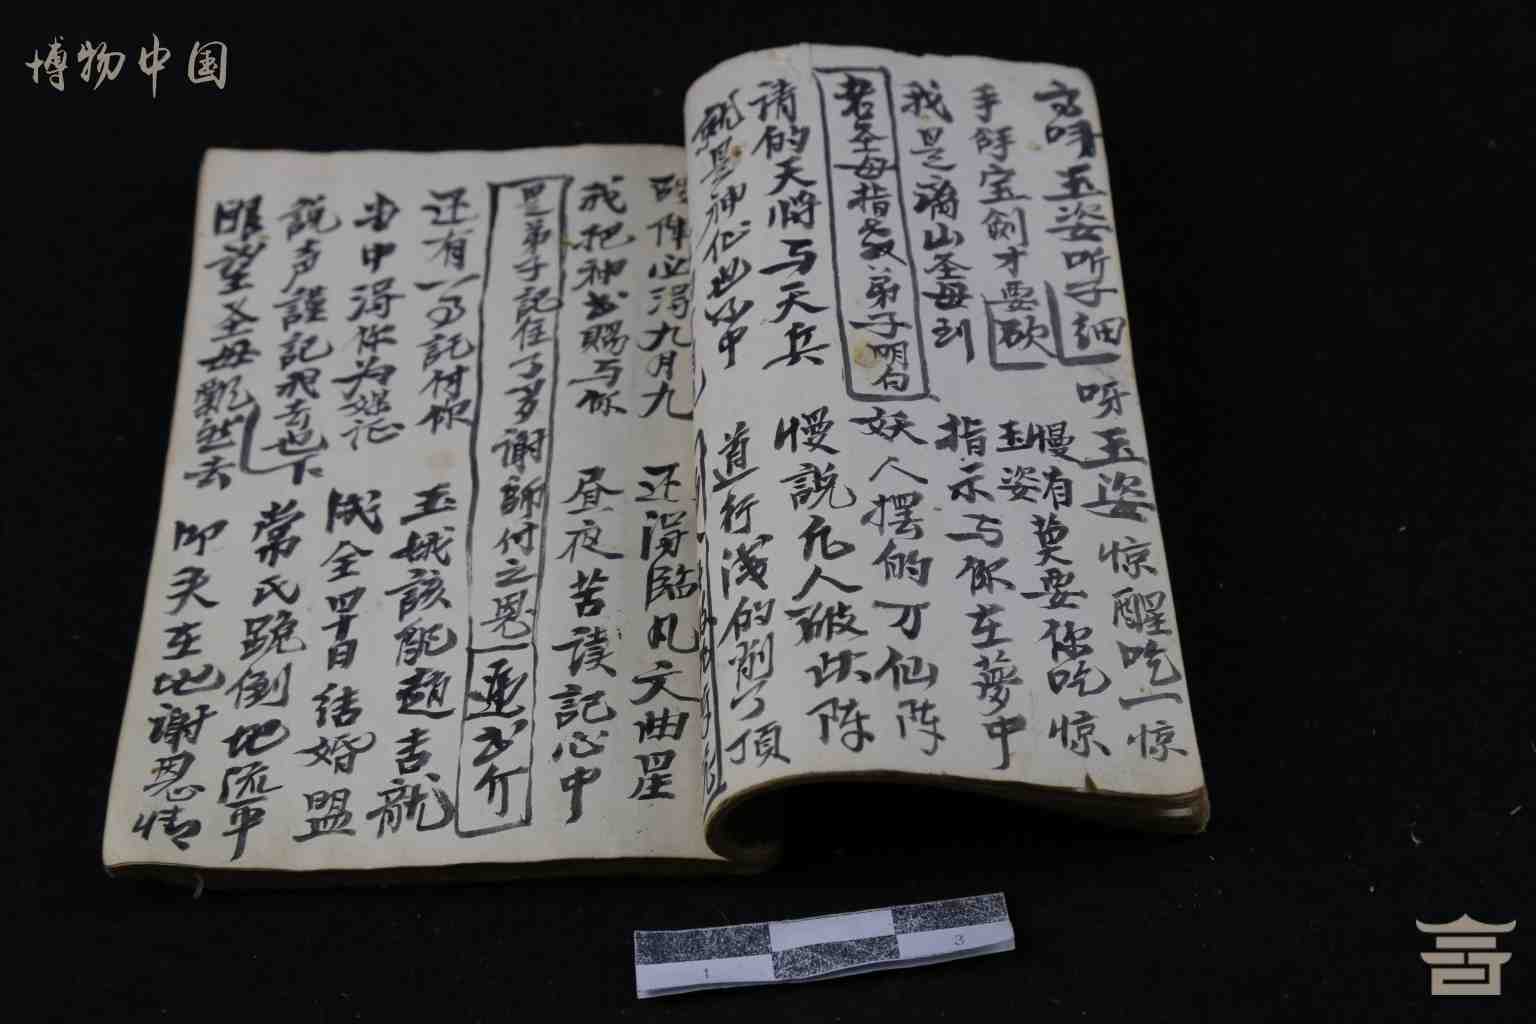 博物中国
玉姿听子細
呀玉姿惊醒吃一惊
手 宝劍才要砍
慢有莫要你吃惊
我是 山圣母到
玉姿
指示与你在夢中
若圣母指教弟子明白
妖人摆的万仙阵
请的天将与天兵
慢説凡人破此阵
就是神仙也 中
道行浅的削了頂
必得九月九
还得臨凡文曲星
我把神书賜与你
昼夜苦读記心中
是弟子記住了多謝師付之恩
介
还有一 託付你
玉娥該配趙吉龍
中得你为媒证
成全 日结婚盟
説声謹記我去也下
常氏跪倒地流平
眼望圣母飄然去
叩天在地謝恩情
1
3